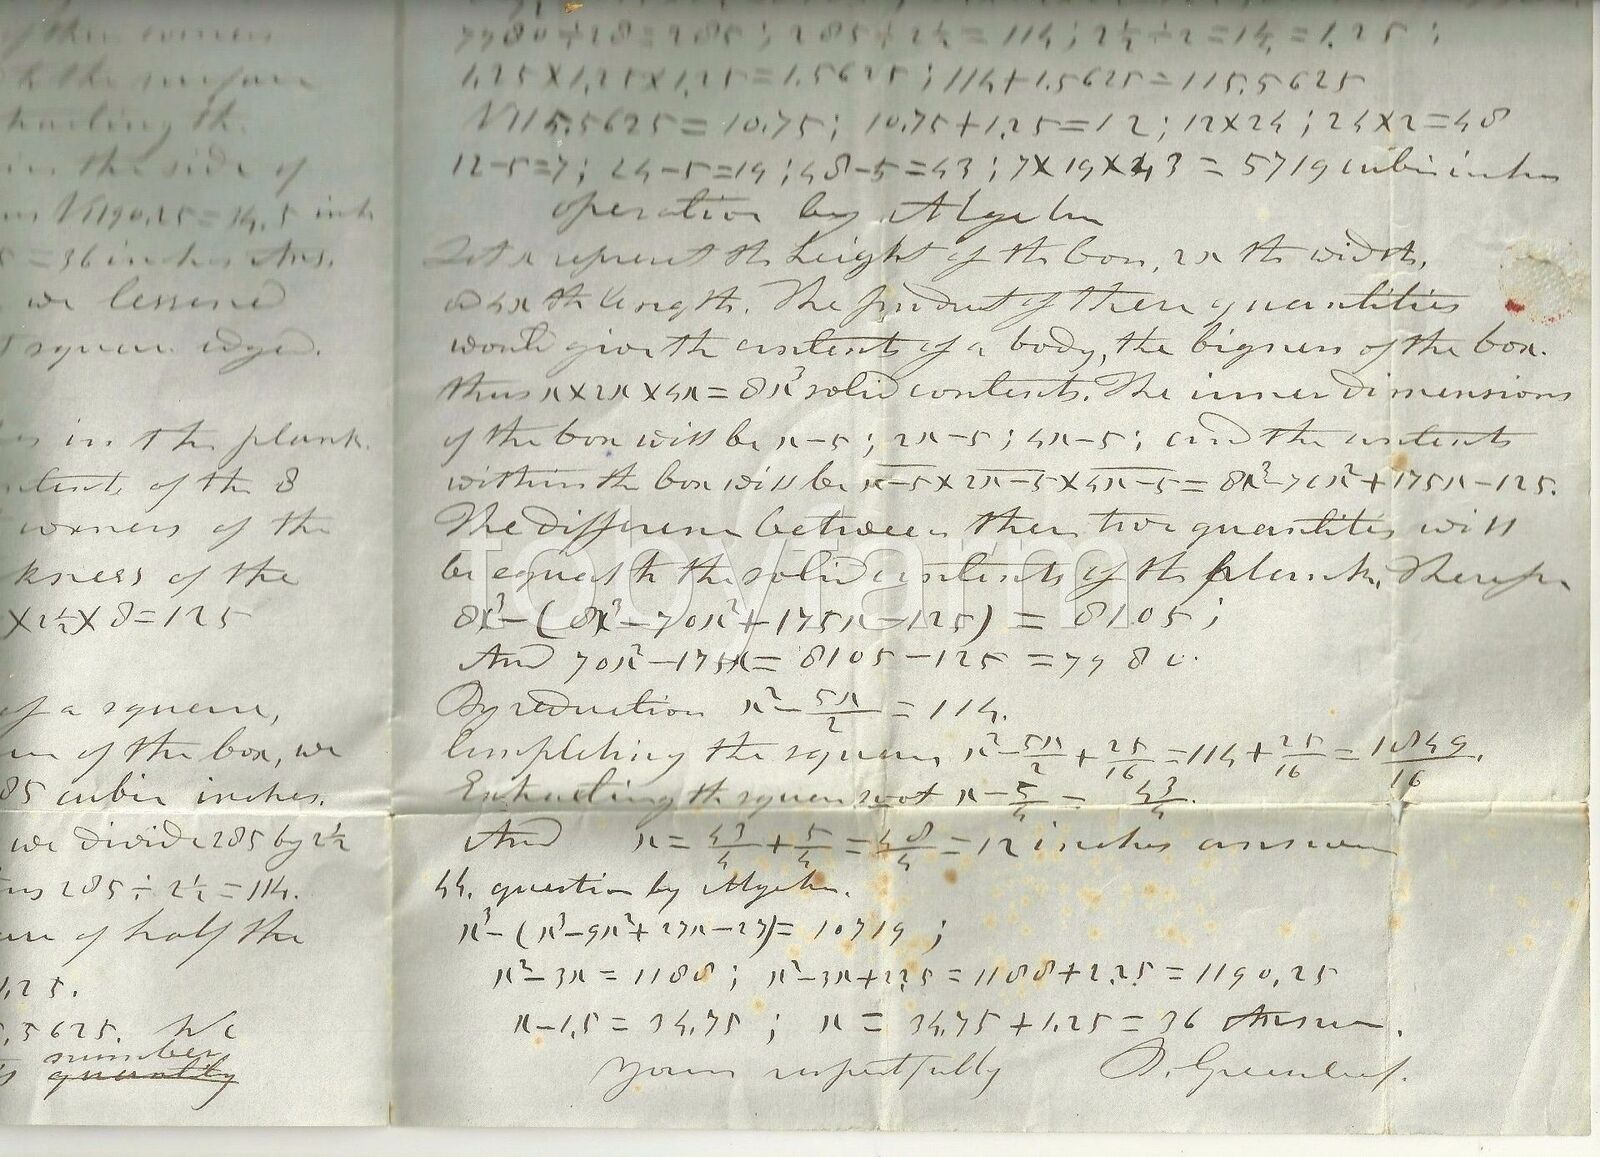 of the corners
the surface
the
in the side of
√1190,25=34,5 inch
=36 inches Ans.
we lessened
square edged.
in the plank.
of the 8
corners of the
kness of the
×2½×8=125
of a square,
of the box, we
85 cubic inches.
we divide 285 by 2½
285÷2½=114.
of half the
1,25.
5,5625. We
number
quantity
7980÷28=285; 285÷2½=114; 2½÷2=1¼=1.25;
1,25×1,25×1,25=1.5625; 114+1.5625=115,5625
√115.5625=10.75; 10.75+1.25=12; 12×24; 24×2=48
12-5=7; 24-5=19; 48-5=43; 7×19×43=5719 cubic inches
operation by Algebra
Let x represent the height of the box, 2x the width,
& 4x the length. The product of these quantities
would give the contents of a body, the bigness of the box.
thus x×2x×4x=8x³ solid contents. The inner dimensions
of the box will be x-5; 2x-5; 4x-5; and the contents
within the box will be x-5×2x-5×4x-5=8x³-70x²+175x-125.
The difference between these two quantities will
be equal to the solid contents of the plank. Therefore
8x³-(8x³-70x²+175x-125)=8105;
And 70x²-175x=8105-125=7980.
By reduction x²-5x/2=114.
Completing the square, x²-5x/2+25/16=114+25/16=1849/16.
Extracting the square root x-5/4=43/4.
And x=43/4+5/4=48/4=12 inches answer
44. question by Algebra.
x³-(x³-9x²+27x-27)=10719;
x²-3x=1188; x²-3x+2,25=1188+2.25=1190,25
x-1,5=34,75; x=34,75+1.25=36 Answer.
Yours respectfully B. Greenleaf.
fobyfarm